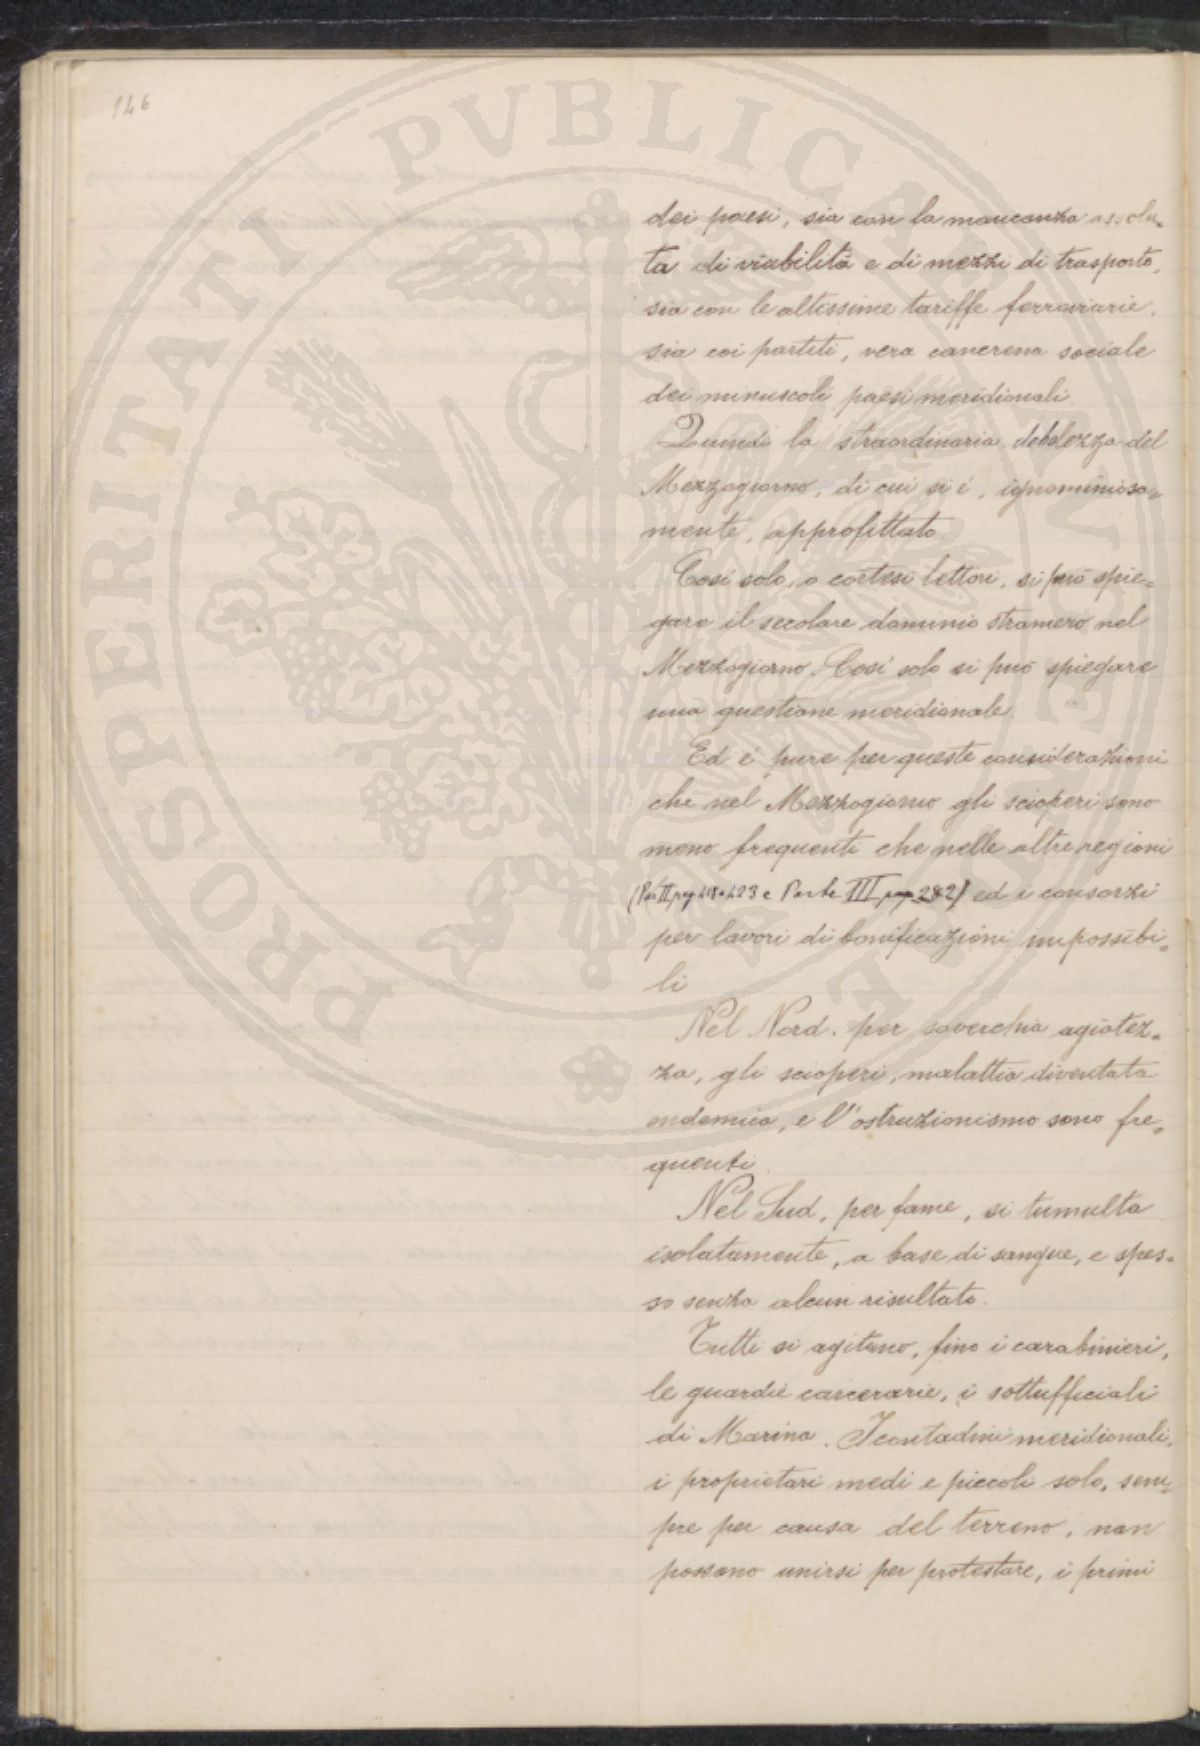 146
PROSPERITATI PVBLICAE
dei paesi, sia con la mancanza assolu=
ta di viabilità e di mezzi di trasporto,
sia con le altissime tariffe ferroviarie,
sia coi partiti, vera cancrena sociale
dei minuscoli paesi meridionali.
Quindi la straordinaria debolezza del
Mezzogiorno, di cui si è, ignominiosa=
mente, approfittato.
Così solo, o cortesi lettori, si può spie=
gare il secolare dominio straniero nel
Mezzogiorno. Così solo si può spiegare
una questione meridionale.
Ed è pure per queste considerazioni
che nel Mezzogiorno gli scioperi sono
meno frequenti che nelle altre regioni
e Parte III pag 282) ed i consorzi
per lavori di bonificazioni impossibi=
li
Nel Nord, per soverchia agiatez=
za, gli scioperi, malattia diventata
endemica, e l'ostruzionismo sono fre=
quenti.
Nel Sud, per fame, si tumulta
isolatamente, a base di sangue, e spes=
so senza alcun risultato.
Tutti si agitano, fino i carabinieri,
le guardie carcerarie, i sottufficiali
di Marina. I contadini meridionali,
i proprietari medi e piccoli solo, sem=
pre per causa del terreno, non
possono unirsi per protestare, i primi